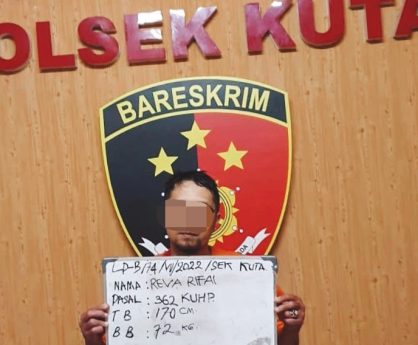 OLSEK KUTA
BARESKRIM
LP-B/74/VI/2022/SEK KUTA
NAMA : REVA RIFAI
PASAL : 362 KUHP
T B : 170 CM
B B : 72 KG